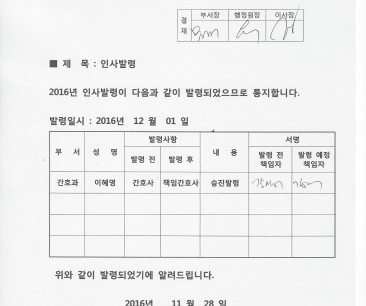 결 재 부서장 행정원장 이사장
■ 제 목 : 인사발령
2016년 인사발령이 다음과 같이 발령되었으므로 통지합니다.
발령일시 : 2016년 12 월 01 일
부 서 성 명 발령사항 내 용 서명
발령 전 발령 후 발령 전 책임자 발령 예정 책임자
간호과 이혜영 간호사 책임간호사 승진발령
위와 같이 발령되었기에 알려드립니다.
2016년 11 월 28 일